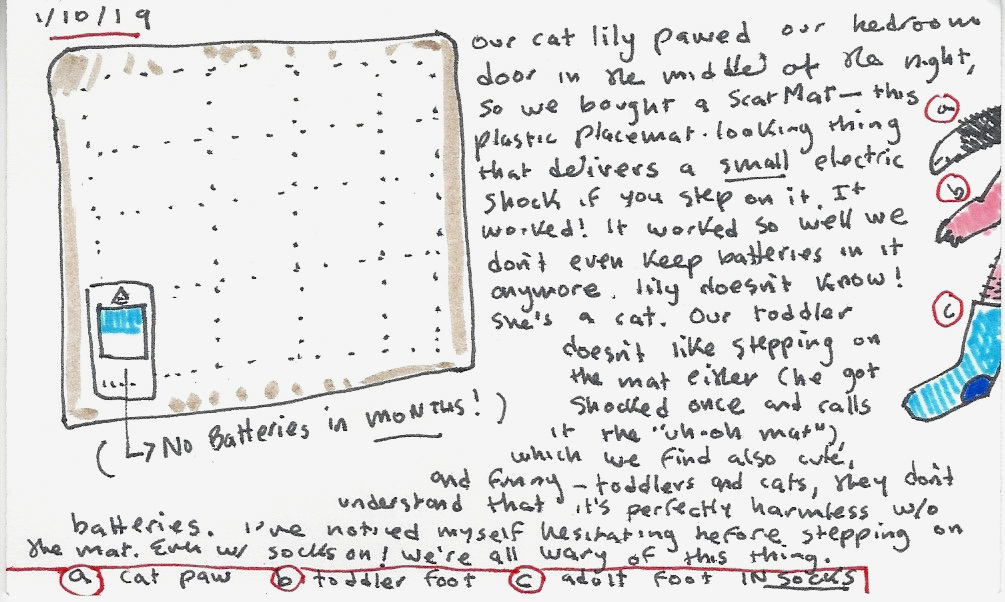 1/10/19
our cat lily pawed our bedroom
door in the middle of the night,
so we bought a ScatMat — this
plastic placemat-looking thing
that delivers a small electric
shock if you step on it. It
worked! It worked so well we
don't even keep batteries in it
anymore. lily doesn't know!
She's a cat. Our toddler
doesn't like stepping on
the mat either (he got
shocked once and calls
it the "uh-oh mat"),
which we find also cute,
and funny — toddlers and cats, they don't
understand that it's perfectly harmless w/o
batteries. I've noticed myself hesitating before stepping on
the mat. Even w/ socks on! We're all wary of this thing.
(↳ No Batteries in MONTHS!)
a
b
c
a cat paw b toddler foot c adult foot IN SOCKS